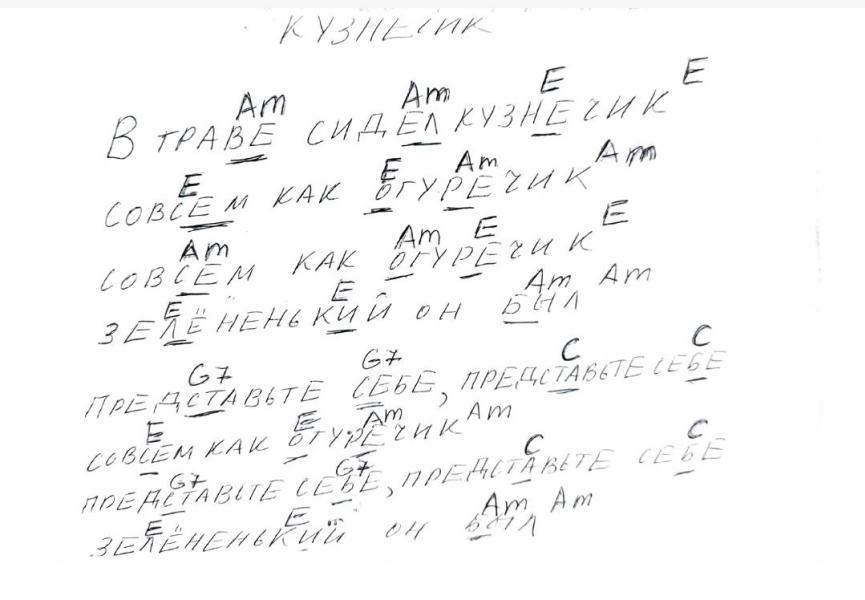 КУЗНЕЧИК
Am Am E E
В ТРАВЕ СИДЕЛ КУЗНЕЧИК
E E Am Am
СОВСЕМ КАК ОГУРЕЧИК
Am Am E E
СОВСЕМ КАК ОГУРЕЧИК
E E Am Am
ЗЕЛЁНЕНЬКИЙ ОН БЫЛ
G7 G7 C C
ПРЕДСТАВЬТЕ СЕБЕ, ПРЕДСТАВЬТЕ СЕБЕ
E E Am Am
СОВСЕМ КАК ОГУРЕЧИК
G7 G7 C C
ПРЕДСТАВЬТЕ СЕБЕ, ПРЕДСТАВЬТЕ СЕБЕ
E E Am Am
ЗЕЛЁНЕНЬКИЙ ОН БЫЛ